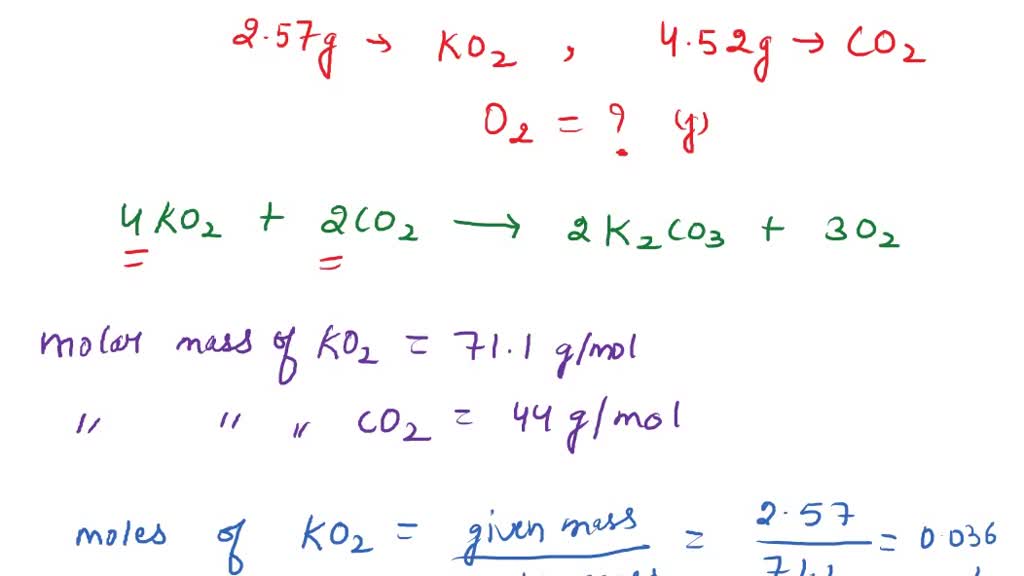 2.57g → KO₂ , 4.52g → CO₂
O₂ = ? (g)
4KO₂ + 2CO₂ ⟶ 2K₂CO₃ + 3O₂
molar mass of KO₂ = 71.1 g/mol
" " " CO₂ = 44 g/mol
moles of KO₂ = given mass = 2.57 = 0.036
71.1